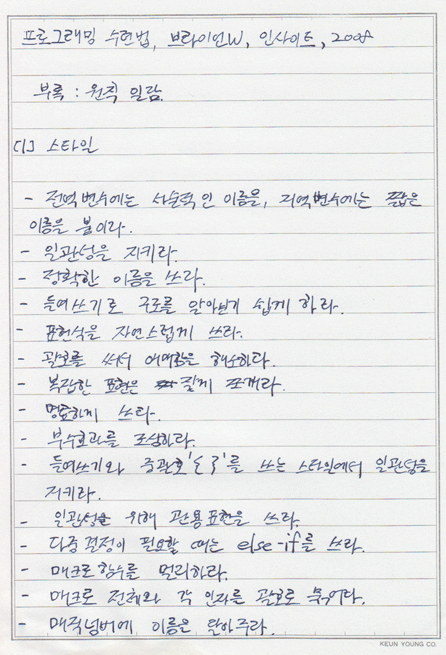 프로그래밍 수련법, 브라이언W, 인사이트, 2008
부록 : 원칙 일람
[1] 스타일
- 전역변수에는 서술적인 이름을, 지역변수에는 짧은
이름을 붙이라.
- 일관성을 지키라.
- 정확한 이름을 쓰라.
- 들여쓰기로 구조를 알아보기 쉽게 하라.
- 표현식을 자연스럽게 쓰라.
- 괄호를 써서 애매함을 해소하다.
- 복잡한 표현은 잘게 쪼개라.
- 명료하게 쓰라.
- 부수효과를 조심하라.
- 들여쓰기와 중괄호'{ }'를 쓰는 스타일에서 일관성을
지키라.
- 일관성을 위해 관용표현을 쓰라.
- 다중 결정이 필요할 때는 else-if를 쓰라.
- 매크로 함수를 멀리하라.
- 매크로 전체와 각 인자를 괄호로 묶어라.
- 매직넘버에 이름을 달아주라.
KEUN YOUNG CO.